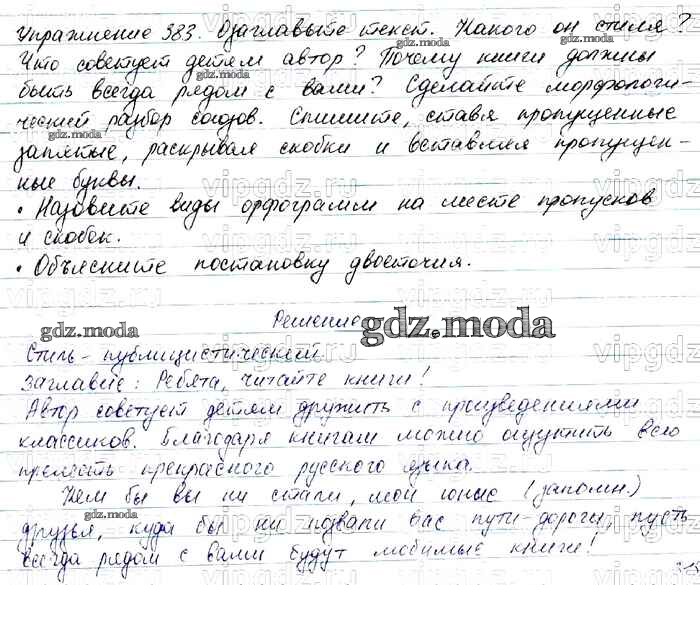 Упражнение 383. Озаглавьте текст. Какого он стиля?
Что советует детям автор? Почему книги должны
быть всегда рядом с вами? Сделайте морфологи-
ческий разбор союзов. Спишите, ставя пропущенные
запятые, раскрывая скобки и вставляя пропущен-
ные буквы.
• Назовите виды орфограмм на месте пропусков
и скобок.
• Объясните постановку двоеточия.
Решение
gdz.moda
Стиль - публицистический
Заглавие: Ребята, читайте книги!
Автор советует детям дружить с произведениями
классиков. Благодаря книгам можно ощутить всю
прелесть прекрасного русского языка.
Кем бы вы ни стали, мои юные (запомн.)
друзья, куда бы ни позвали вас пути-дороги, пусть
всегда рядом с вами будут любимые книги!